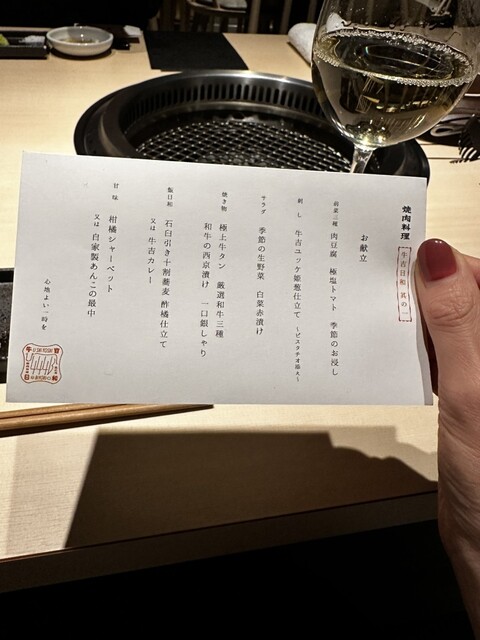 焼肉料理
牛吉日和 其の一
お献立
前菜三種 肉豆腐 極塩トマト 季節のお浸し
刺し 牛吉ユッケ姫葱仕立て ～ピスタチオ添え～
サラダ 季節の生野菜 白菜赤漬け
焼き物 極上牛タン 厳選和牛三種
和牛の西京漬け 一口銀しゃり
飯日和 石臼引き十割蕎麦 酢橘仕立て
又は 牛吉カレー
甘味 柑橘シャーベット
又は 自家製あんこの最中
心地よい一時を